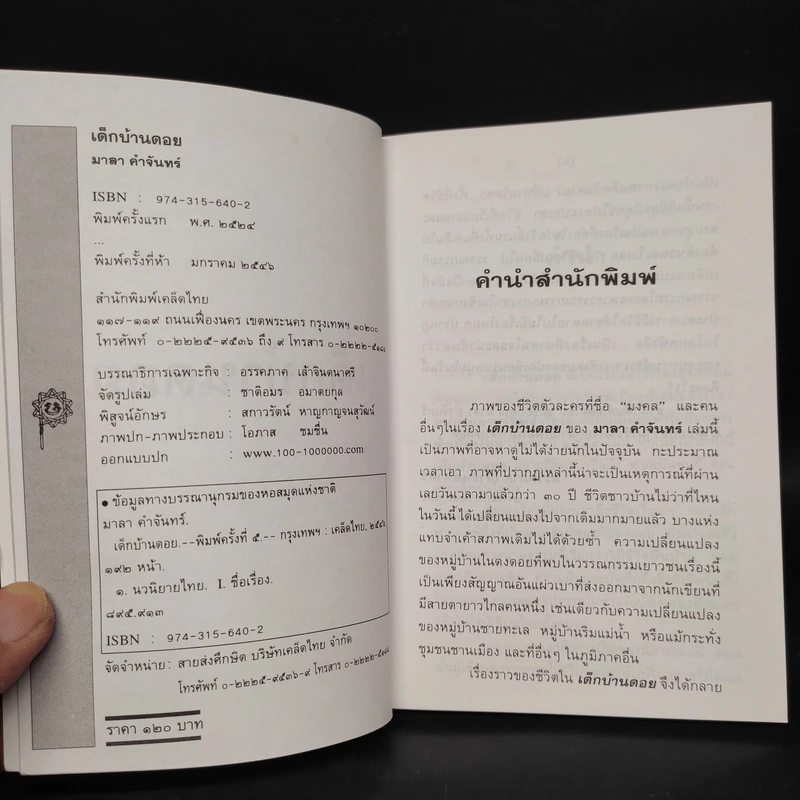 เด็กบ้านดอย
มาลา คำจันทร์
ISBN : 974-315-640-2
พิมพ์ครั้งแรก พ.ศ. ๒๕๒๔
...
พิมพ์ครั้งที่ห้า มกราคม ๒๕๔๖
สำนักพิมพ์เคล็ดไทย
๑๑๗-๑๑๙ ถนนเฟื่องนคร เขตพระนคร กรุงเทพฯ ๑๐๒๐๐
โทรศัพท์ ๐-๒๒๒๕-๙๕๓๖ ถึง ๙ โทรสาร ๐-๒๒๒๒-๕๑๘๘
บรรณาธิการเฉพาะกิจ : อรรคภาค เล้าจินตนาศรี
จัดรูปเล่ม : ชาติอมร อมาตยกุล
พิสูจน์อักษร : สกาวรัตน์ หาญกาญจนสุวัฒน์
ภาพปก-ภาพประกอบ : โอภาส ชมชื่น
ออกแบบปก : www.100-1000000.com
● ข้อมูลทางบรรณานุกรมของหอสมุดแห่งชาติ
มาลา คำจันทร์.
เด็กบ้านดอย.--พิมพ์ครั้งที่ ๕.-- กรุงเทพฯ : เคล็ดไทย, ๒๕๔๖
๑๙๒ หน้า.
๑. นวนิยายไทย. I. ชื่อเรื่อง.
๘๙๕.๙๑๓
ISBN : 974-315-640-2
จัดจำหน่าย : สายส่งศึกษิต บริษัทเคล็ดไทย จำกัด
โทรศัพท์ ๐-๒๒๒๕-๙๕๓๖-๙ โทรสาร ๐-๒๒๒๒-๕๑๘๘
ราคา ๑๒๐ บาท
คำนำสำนักพิมพ์
ภาพของชีวิตตัวละครที่ชื่อ “มงคล” และคน
อื่นๆในเรื่อง เด็กบ้านดอย ของ มาลา คำจันทร์ เล่มนี้
เป็นภาพที่อาจหาดูไม่ได้ง่ายนักในปัจจุบัน กะประมาณ
เวลาเอา ภาพที่ปรากฏเหล่านี้น่าจะเป็นเหตุการณ์ที่ผ่าน
เลยวันเวลามาแล้วกว่า ๓๐ ปี ชีวิตชาวบ้านไม่ว่าที่ไหน
ในวันนี้ได้เปลี่ยนแปลงไปจากเดิมมากมายแล้ว บางแห่ง
แทบจำเค้าสภาพเดิมไม่ได้ด้วยซ้ำ ความเปลี่ยนแปลง
ของหมู่บ้านในดงดอยที่พบในวรรณกรรมเยาวชนเรื่องนี้
เป็นเพียงสัญญาณอันแผ่วเบาที่ส่งออกมาจากนักเขียนที่
มีสายตายาวไกลคนหนึ่ง เช่นเดียวกับความเปลี่ยนแปลง
ของหมู่บ้านชายทะเล หมู่บ้านริมแม่น้ำ หรือแม้กระทั่ง
ชุมชนชานเมือง และที่อื่นๆ ในภูมิภาคอื่น
เรื่องราวของชีวิตใน เด็กบ้านดอย จึงได้กลาย